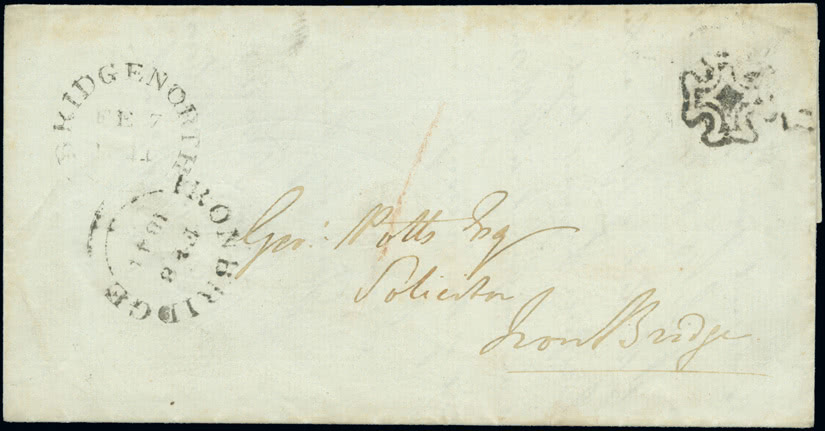 BRIDGENORTH
FE 7
IRONBRIDGE
FE 8
1841
Geo: Potts Esq
Solicitor
Iron Bridge